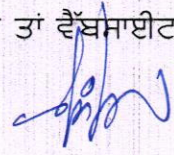 ਤਾਂ ਵੈੱਬਸਾਈਟ